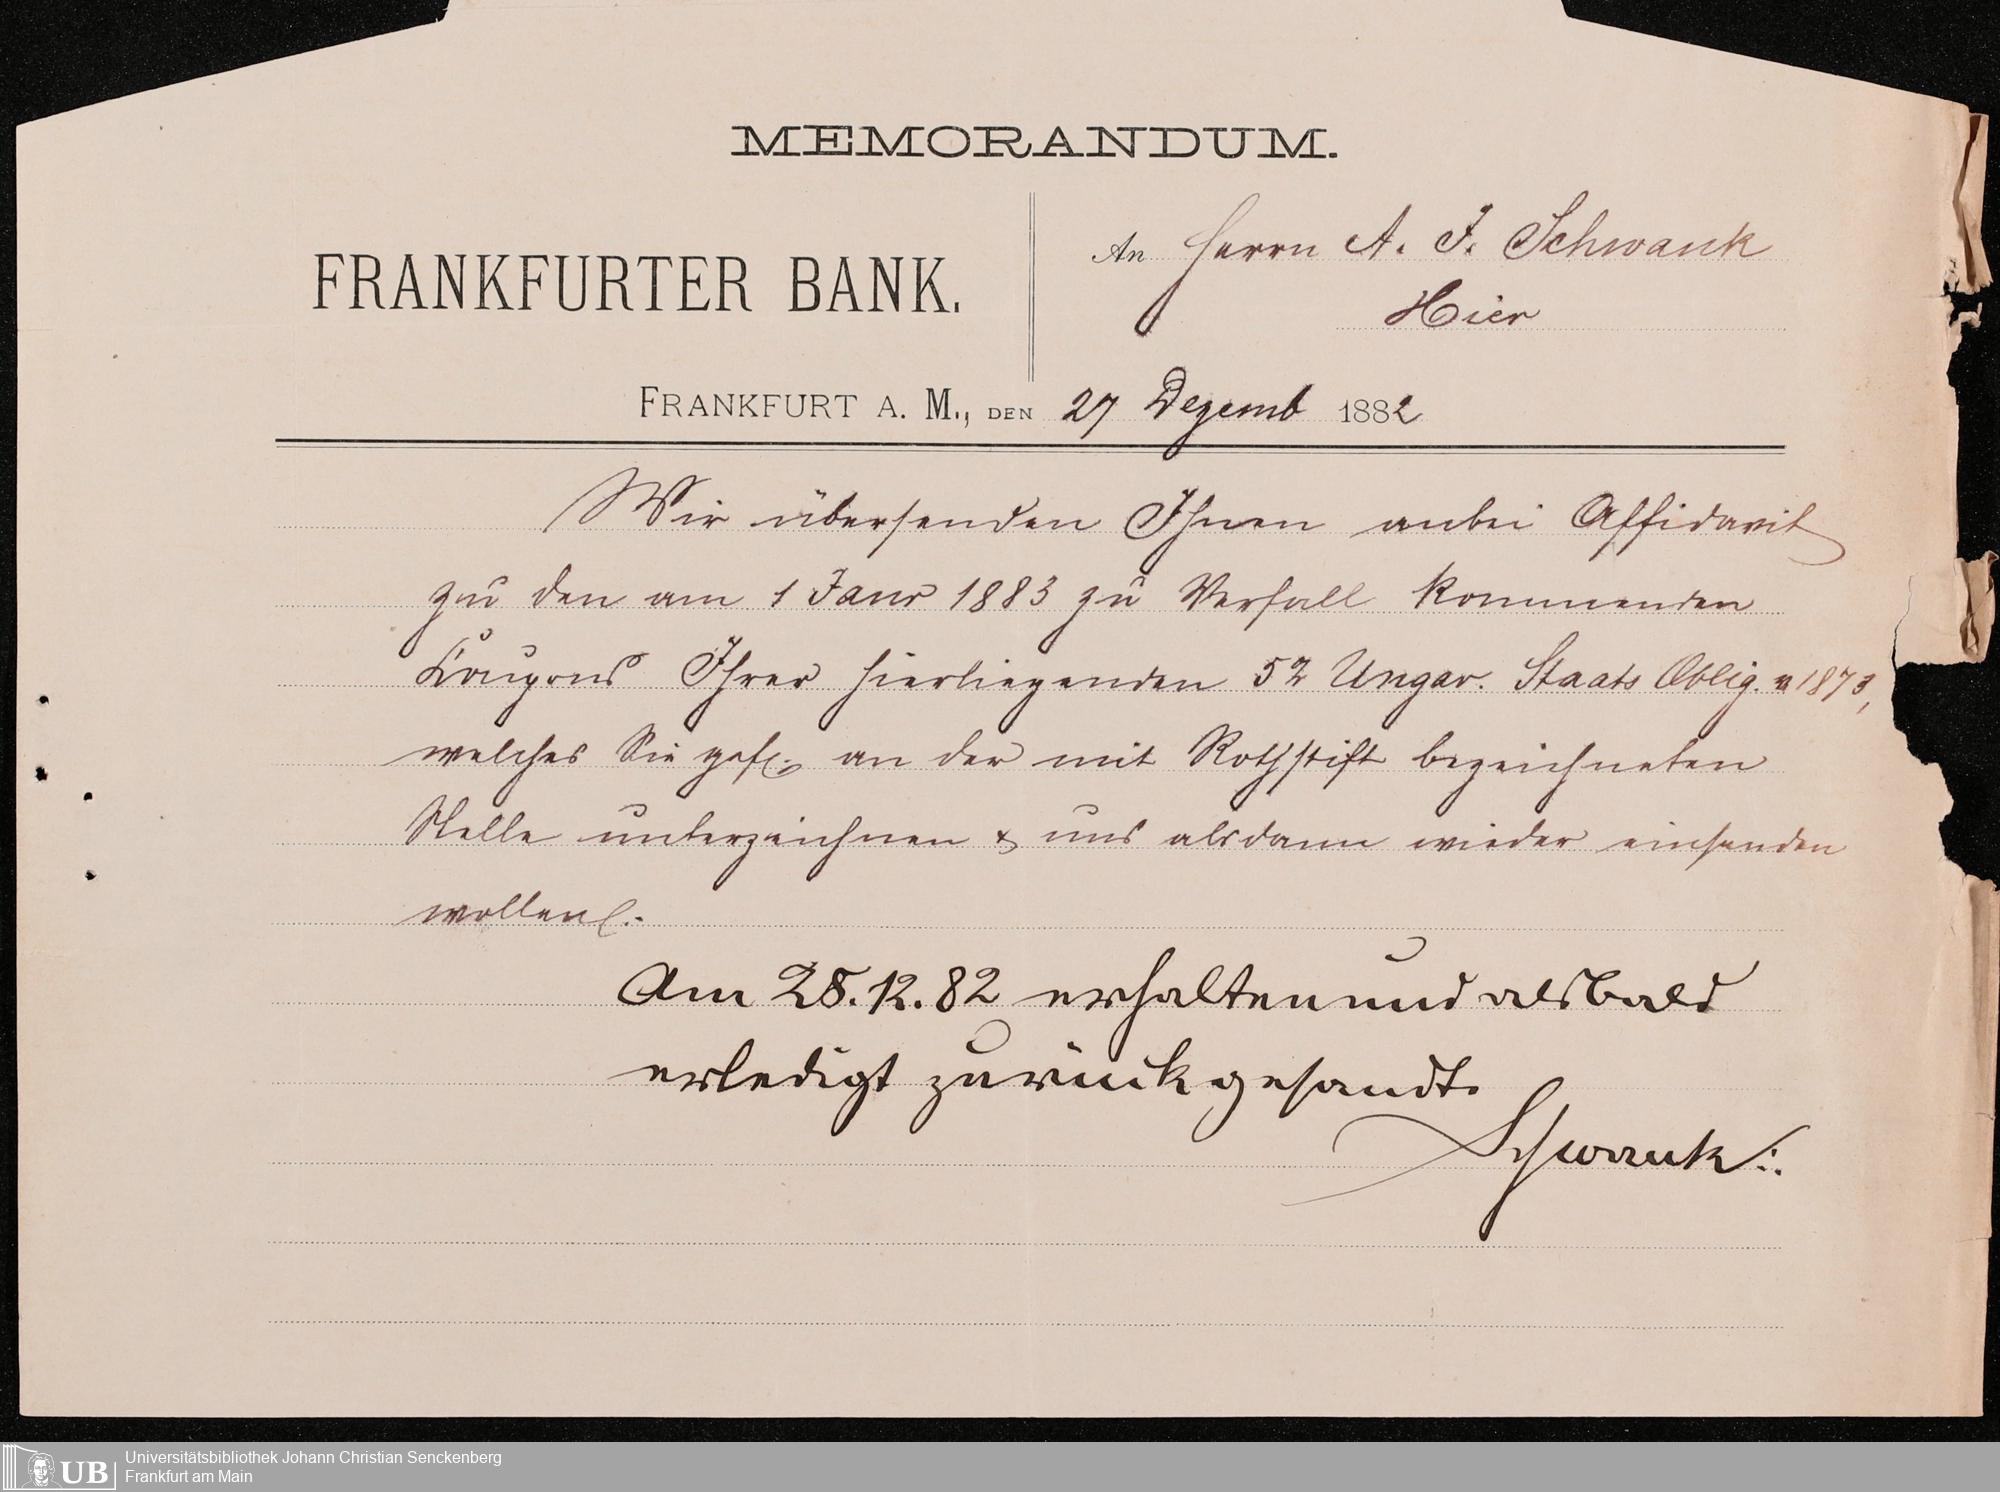 MEMORANDUM.
FRANKFURTER BANK.
An Herrn A. F. Schwank
Hier
FRANKFURT A. M., DEN 27 Dezemb 1882
Wir übersenden Ihnen anbei Affidavit
zu den am 1 Janr 1883 zu Verfall kommenden
Coupons Ihrer hierliegenden 52 Ungar. Staats Oblig. v 1873,
welches Sie gefl. an der mit Rothstift bezeichneten
Stelle unterzeichnen & uns alsdann wieder einsenden
wollen.
Am 28.12.82 erhalten und alsbald
erledigt zurückgesandt.
Schwank
UB
Universitätsbibliothek Johann Christian Senckenberg
Frankfurt am Main